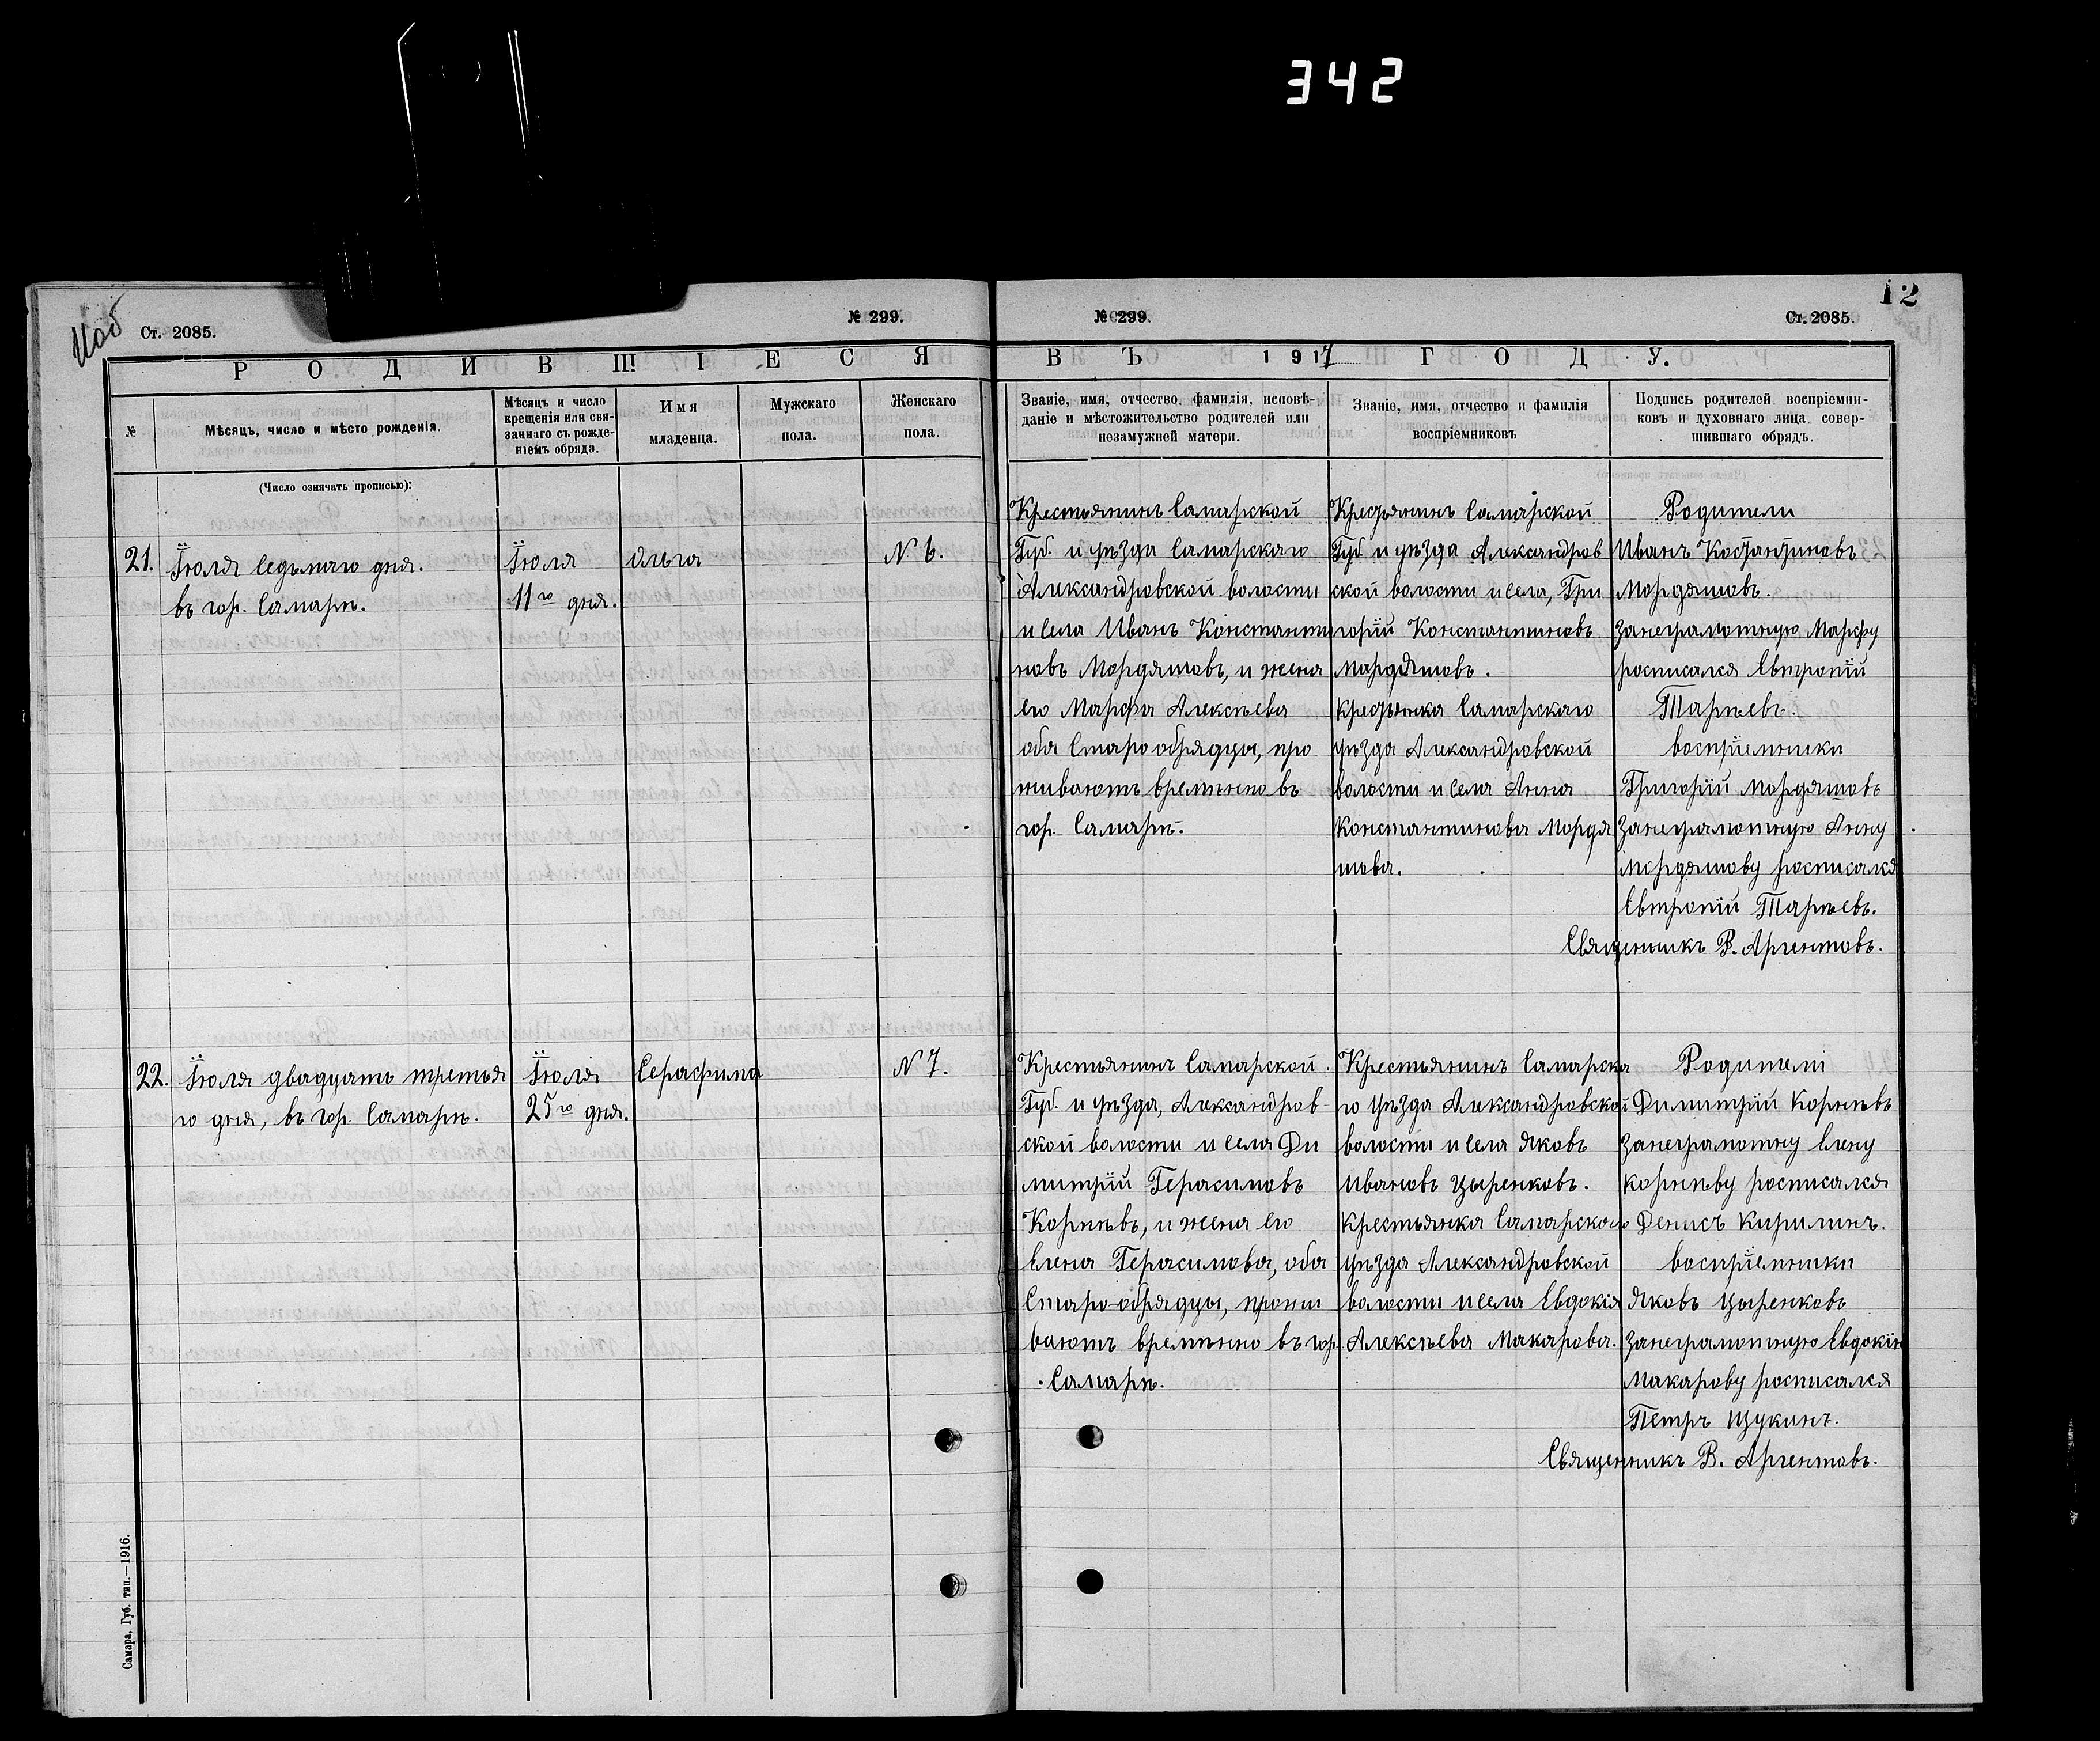 342
12
Ст. 2085.
№ 299.
№ 299.
Ст. 2085.
РОДИВШІЕСЯ ВЪ 1917 ГОДУ.
№
Мѣсяцъ, число и мѣсто рожденія.
Мѣсяцъ и число
крещенія или свя-
заннаго съ рожде-
ніемъ обряда.
Имя
младенца.
Мужскаго
пола.
Женскаго
пола.
Званіе, имя, отчество, фамилія, исповѣ-
даніе и мѣстожительство родителей или
незамужней матери.
Званіе, имя, отчество и фамилія
воспріемниковъ
Подпись родителей воспріемни-
ковъ и духовнаго лица совер-
шившаго обрядъ.
(Число означать прописью):
21.
Іюля седьмаго дня.
въ гор. Самарѣ.
Іюля
11го дня.
Ольга
N 6.
Крестьянинъ Самарской
Губ. и уѣзда Самарскаго
Александровской волости
и села Иванъ Константи
новъ Мордяшовъ, и жена
его Марфа Алексѣева
оба Старообрядцы, про
живаютъ времѣнно въ
гор. Самарѣ.
Крестьянинъ Самарской
Губ. и уѣзда Александров
ской волости и села, Гри
горій Константиновъ
Мардяшовъ.
Крестьянка Самарскаго
уѣзда Александровской
волости и села Анна
Константинова Мордя
шова.
Родители
Иванъ Костантиновъ
Мордяшовъ.
Занеграмотную Марфу
росписался Евтропій
Тарѣевъ.
воспріемники
Григорій Мордяшовъ
Занеграмотную Анну
Мордяшову росписался
Евтропій Тарѣевъ.
Священникъ В. Аргентовъ.
22.
Іюля двадцать третья
го дня, въ гор. Самарѣ.
Іюля
25го дня.
Серафима
N 7.
Крестьянинъ Самарской
Губ. и уѣзда, Александров
ской волости и села Ди
митрій Герасимовъ
Корнѣвъ, и жена его
Елена Герасимова, оба
Старо-обрядцы, прожи
ваютъ времѣнно въ гор.
Самарѣ.
Крестьянинъ Самарска
го уѣзда Александровской
волости и села Яковъ
Ивановъ Цыренковъ.
Крестьянка Самарскаго
уѣзда Александровской
волости и села Евдокія
Алексѣева Макарова.
Родители
Димитрій Корнѣвъ
Занеграмотну Елену
Корнѣву росписался
Денисъ Кирилинъ.
воспріемники
Яковъ Цыренковъ
Занеграмотную Евдокію
Макарову росписался
Петръ Щукинъ.
Священникъ В. Аргентовъ.
Самара, Губ. тип.—1916.